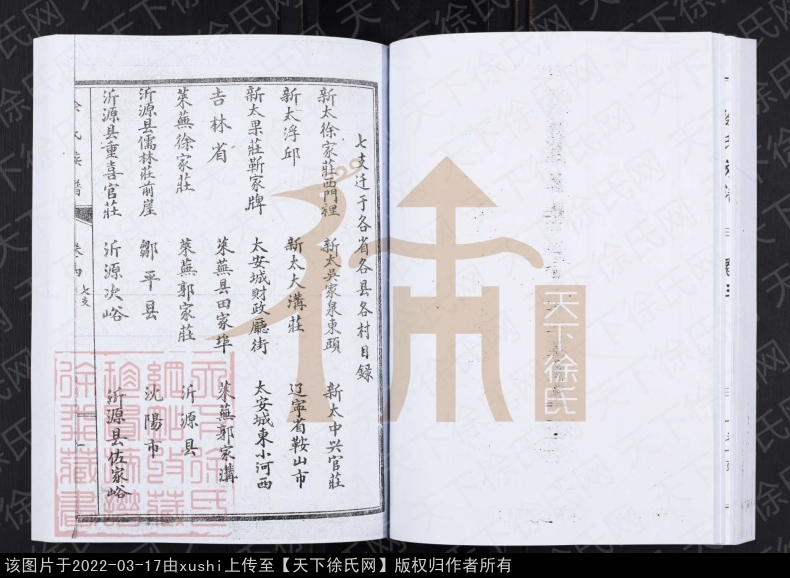 七支迁于各省各县各村目録
新太徐家莊西門裡 新太吴家泉東頭 新太中兴官莊
新太浮邱 新太大溝莊 辽寧省鞍山市
新太果莊靳家牌 太安城財政廳街 太安城東小河西
吉林省 萊蕪县田家埠 萊蕪郭家溝
萊蕪徐家莊 萊蕪郭家莊 沂源县
沂源县儒林莊前崖 鄒平县 沈陽市
沂源县重喜官莊 沂源次峪 沂源县佐家峪
七支
天下徐氏
天下徐氏网
该图片于2022-03-17由xushi上传至【天下徐氏网】版权归作者所有